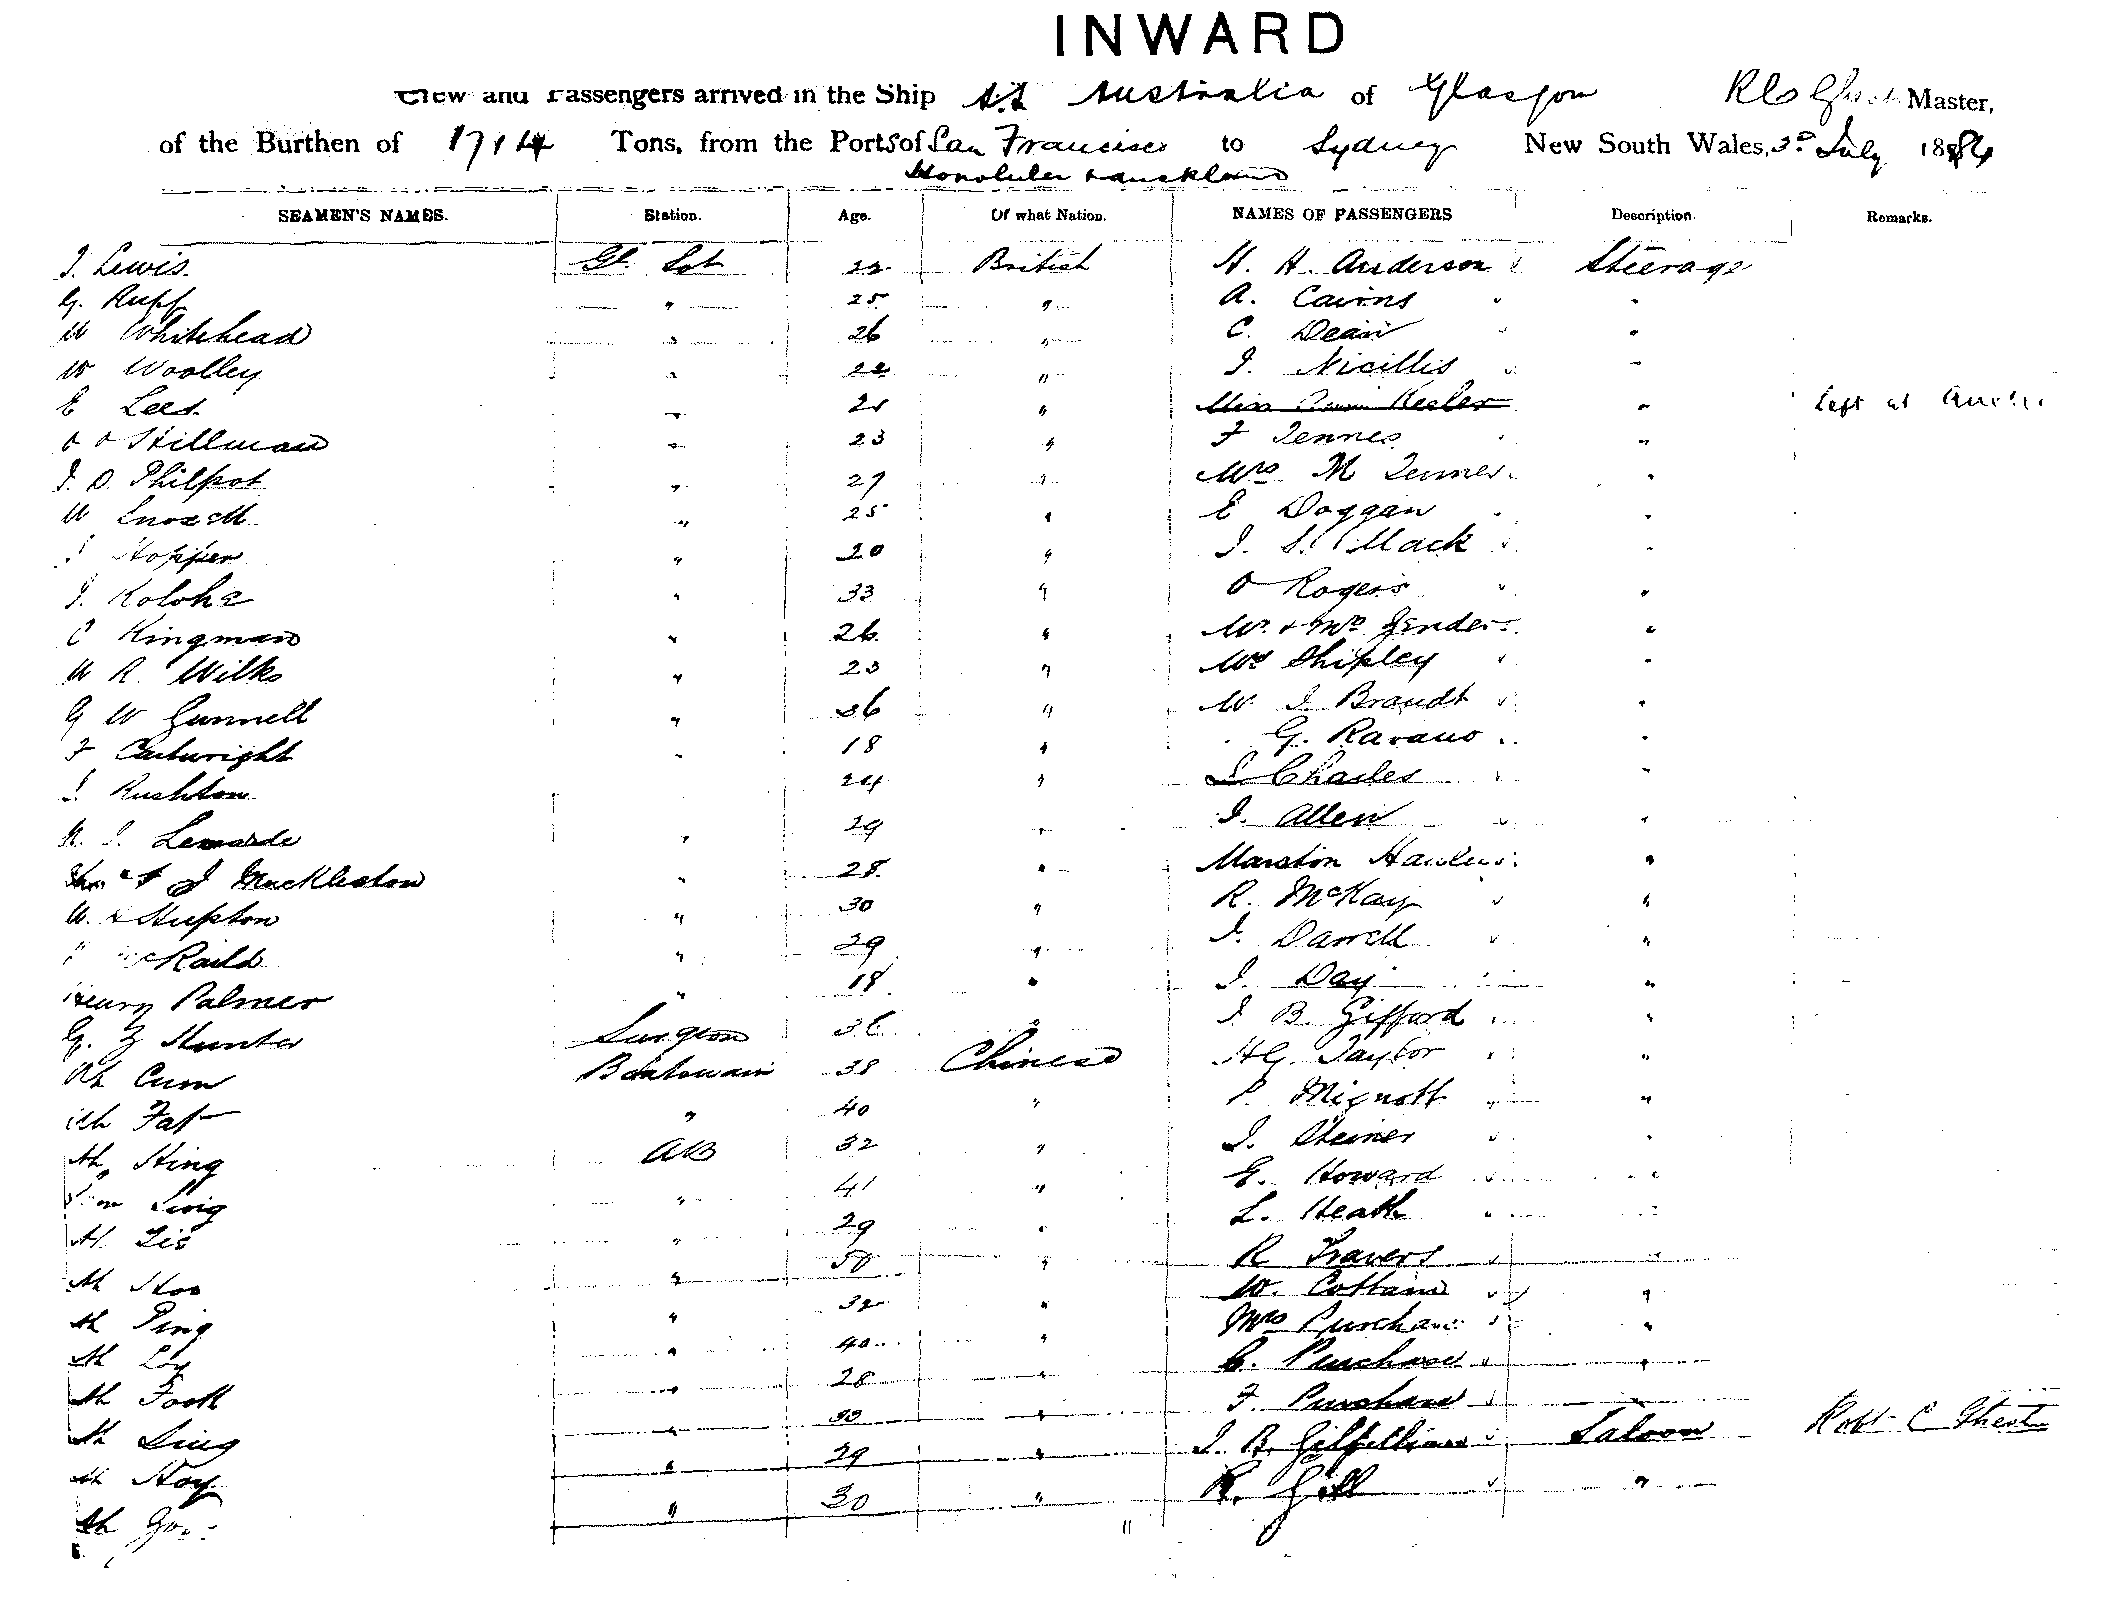 INWARD
Crew and Passengers arrived in the Ship S.S Australia of Glasgow Master,
of the Burthen of 1714 Tons, from the Ports of San Francisco to Sydney New South Wales, 3d July 1884
Honolulu & Auckland
SEAMEN'S NAMES. Station. Age. Of what Nation. NAMES OF PASSENGERS Description. Remarks.
J. Lewis 22 British H. H. Anderson Steerage
G. Ruff " 25 " A. Cairns "
W Whitehead " 26 " C. Dean "
W Woolley " 22 " J. Nicillis "
E Lees " 21 " Miss Kesler " Left at
Stillman " 23 " F Jennes "
J. O. Philpot " 27 " Mrs M Jennes "
W " 25 " E Doggan "
Hopper " 20 " J. S. Mack "
J. Kolohe " 33 " O Rogers "
C Kingman " 26 " Mr & Mrs Gender "
W R. Wilks " 23 " Shipley "
G W Gunnell " 36 " W. J Brandt "
F Cartwright " 18 " G. Ravano "
J. Rushton 24 " Charles "
J. " 29 " J. Allen "
J Muckleston " 28 " Marston "
W. Hupton " 30 " R. McKay "
" 29 " J. Darrell "
Henry Palmer " 18 " J. Day "
G. Z Hunter Surgeon 36 " J B Gifford "
Ah Cum Boatswain 38 Chinese H G. Taylor "
Ah Fat " 40 " P. Mignott "
Ah Hing AB 32 " J. Steiner "
Sing " 41 " E. Howard "
Ah " 29 " L. Heath "
Ah Hoo " 50 " R Travers "
Ah Ping " 32 " W. Cottain "
Ah Loy " 40 " Mrs Purchase "
Ah Fook " 28 " C. Purchase "
Ah Sing " 30 " F. Purchase
Ah Hoy " 29 " J. B. Gilfillian Saloon
Ah " 30 " R. Gill "
"